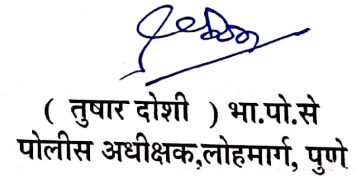 ( तुषार दोशी ) भा.पो.से
पोलीस अधीक्षक,लोहमार्ग, पुणे